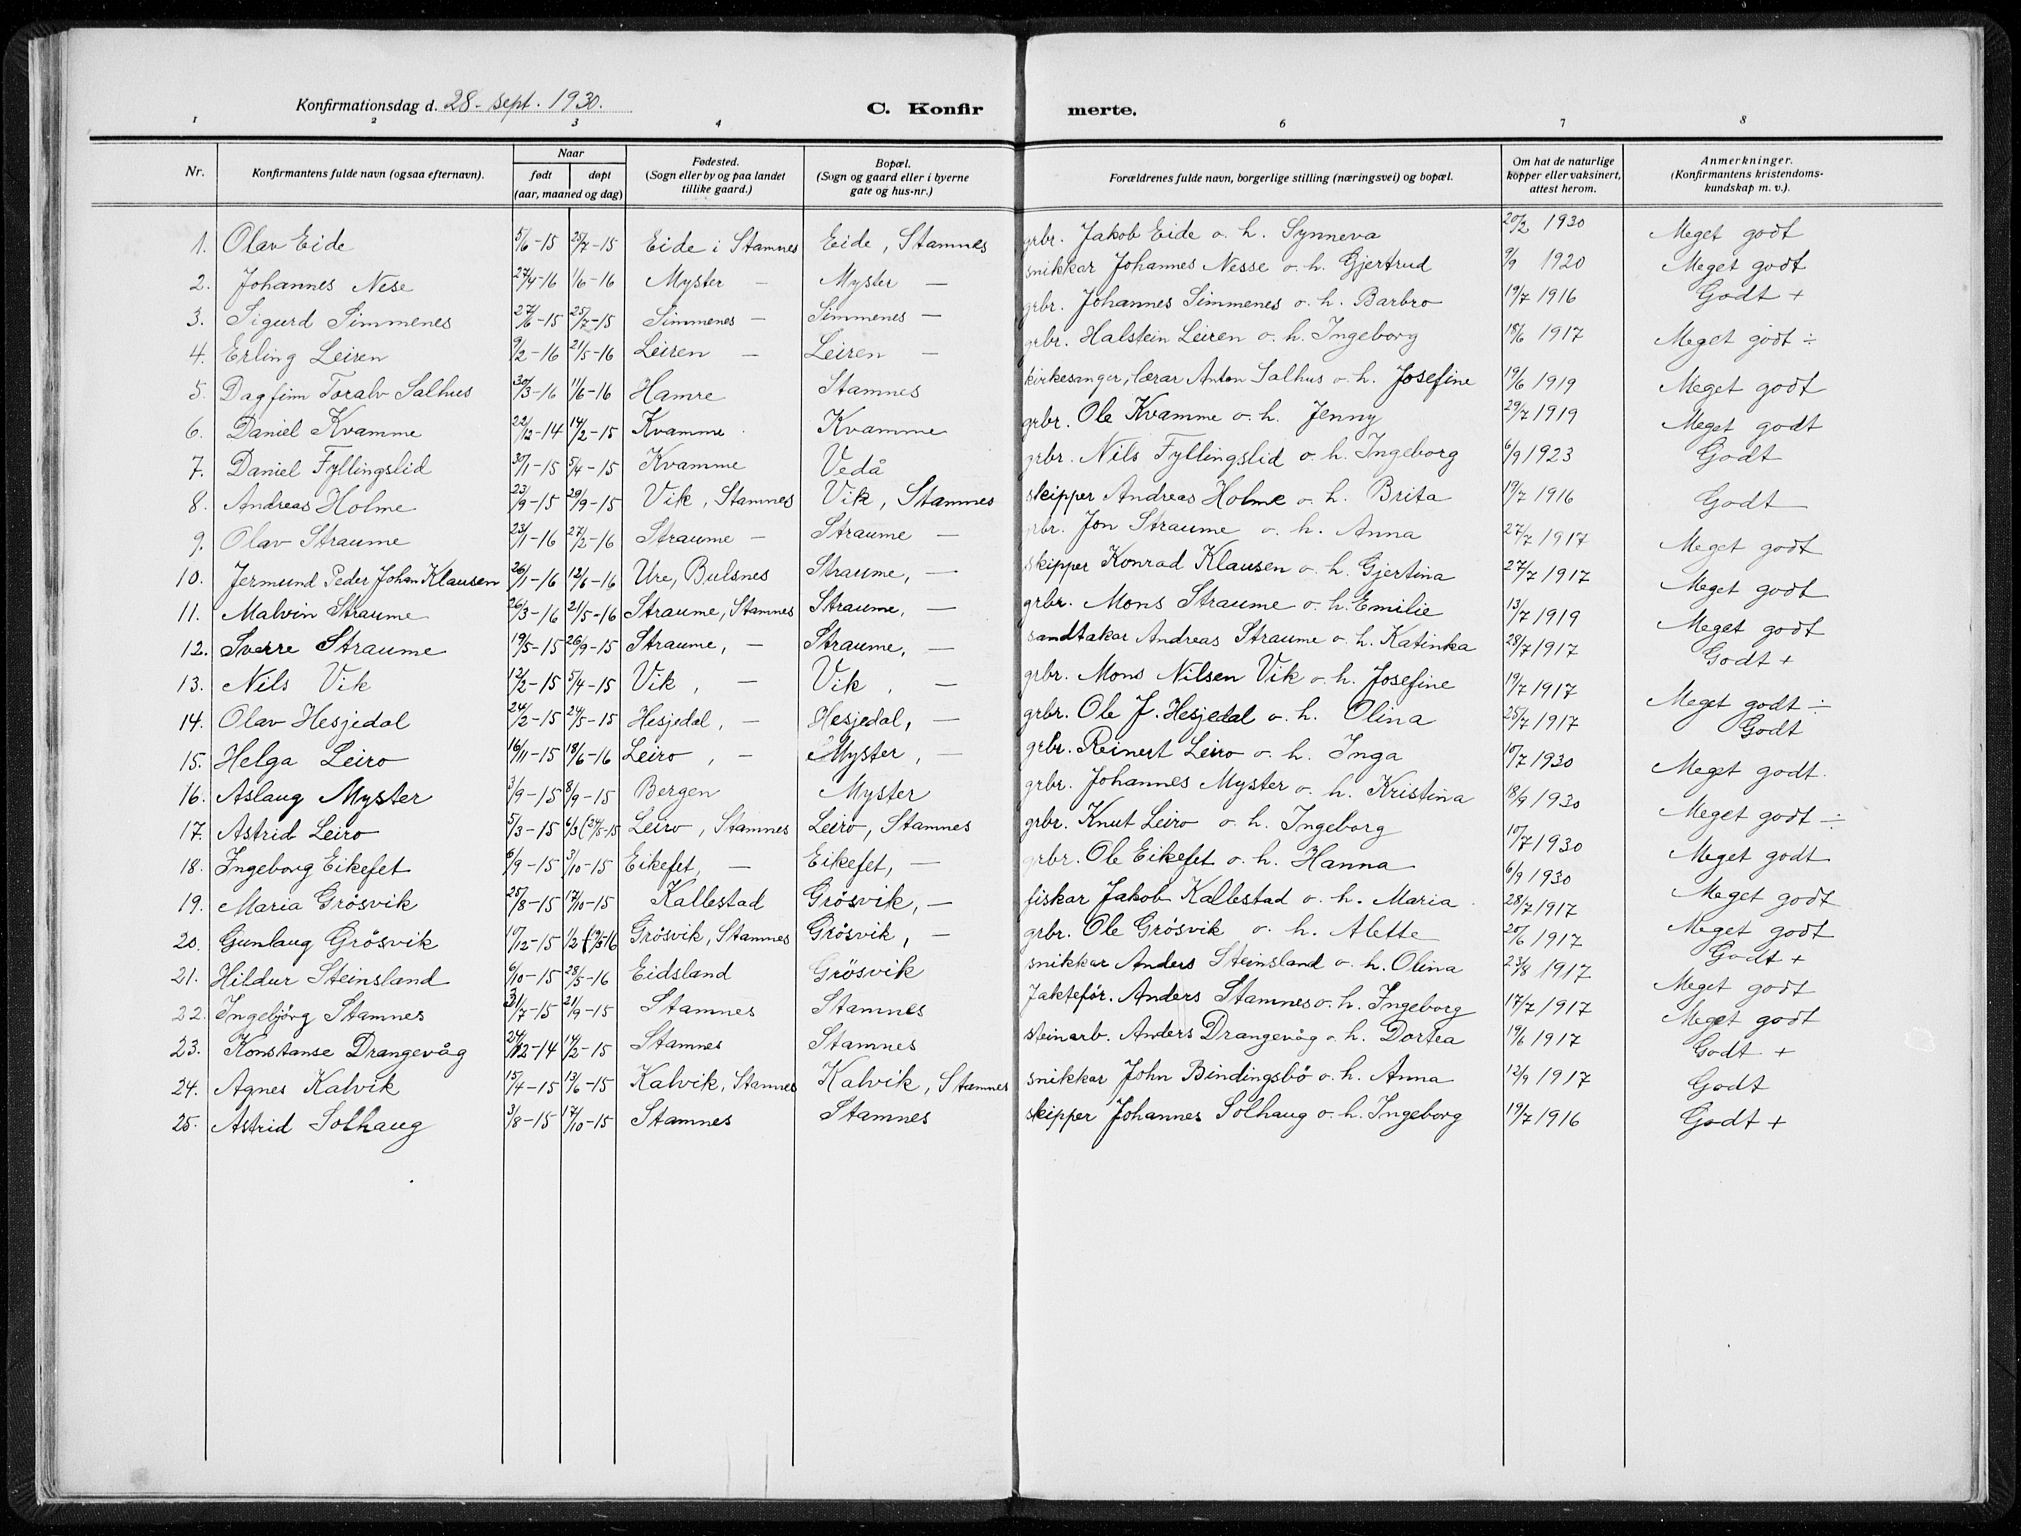 Konfirmationsdag d. 28. sept. 1930.
C. Konfir merte.
1 2 3 4 5 6 7 8
Nr. | Konfirmantens fulde navn (ogsaa efternavn). | Naar født døpt (aar, maaned og dag) | Fødested. (Sogn eller by og paa landet tillike gaard.) | Bopæl. (Sogn og gaard eller i byerne gate og hus-nr.) | Forældrenes fulde navn, borgerlige stilling (næringsvei) og bopæl. | Om hat de naturlige kopper eller vaksinert, attest herom. | Anmerkninger. (Konfirmantens kristendomskundskap m. v.).
1. Olav Eide 5/6-15 25/7-15 Eide i Stamnes Eide, Stamnes grbr. Jakob Eide o. h. Synneva 20/2 1930 Meget godt
2. Johannes Nese 27/4-16 1/6-16 Myster — Myster — snikkar Johannes Nesse o. h. Gjertrud 9/9 1920 Meget godt
3. Sigurd Simmenes 27/6-15 25/7-15 Simmenes — Simmenes — grbr. Johannes Simmenes o. h. Barbro 19/7 1916 Godt +
4. Erling Leiren 9/2-16 21/5-16 Leiren — Leiren — grbr. Halstein Leiren o. h. Ingeborg 18/6 1917 Meget godt ÷
5. Dagfinn Toralv Salhus 30/3-16 11/6-16 Hamre Stamnes kirkesanger, lærar Anton Salhus o. h. Josefine 19/6 1919 Meget godt
6. Daniel Kvamme 22/12-14 14/2-15 Kvamme Kvamme grbr. Ole Kvamme o. h. Jenny 29/7 1919 Meget godt
7. Daniel Fyllingslid 30/1-15 5/4-15 Kvamme Vedå grbr. Nils Fyllingslid o. h. Ingeborg 6/9 1923 Godt
8. Andreas Holme 23/9-15 29/9-15 Vik, Stamnes Vik, Stamnes skipper Andreas Holme o. h. Brita 19/7 1916 Godt
9. Olav Straume 23/1-16 27/2-16 Straume — Straume — grbr. Jon Straume o. h. Anna 27/7 1917 Meget godt
10. Jermund Peder Johan Klausen 26/1-16 12/6-16 Ure, Bulsnes Straume, — skipper Konrad Klausen o. h. Gjertina 27/7 1917 Meget godt
11. Malvin Straume 26/3-16 21/5-16 Straume, Stamnes Straume, — grbr. Mons Straume o. h. Emilie 13/7 1919 Meget godt
12. Sverre Straume 19/5-15 26/9-15 Straume, — Straume, — sandtakar Andreas Straume o. h. Katinka 28/7 1917 Godt +
13. Nils Vik 12/2-15 5/4-15 Vik, — Vik, — grbr. Mons Nilsen Vik o. h. Josefine 19/7 1917 Meget godt ÷
14. Olav Hesjedal 24/2-15 24/5-15 Hesjedal, — Hesjedal, — grbr. Ole J. Hesjedal o. h. Olina 25/7 1917 Godt
15. Helga Leiro 16/11-15 18/6-16 Leiro, — Myster, — grbr. Reinert Leiro o. h. Inga 10/7 1930 Meget godt.
16. Aslaug Myster 3/9-15 8/9-15 Bergen Myster grbr. Johannes Myster o. h. Kristina 18/9 1930 Meget godt ÷
17. Astrid Leiro 5/3-15 6/3 (24/5-15 Leiro, Stamnes Leiro, Stamnes grbr. Knut Leiro o. h. Ingeborg 10/7 1930 Meget godt
18. Ingeborg Eikefet 6/9-15 3/10-15 Eikefet, — Eikefet, — grbr. Ole Eikefet o. h. Hanna 6/9 1930 Meget godt
19. Maria Grösvik 25/8-15 17/10-15 Kallestad Grösvik, — fiskar Jakob Kallestad o. h. Maria 28/7 1917 Meget godt
20. Gunlaug Grösvik 17/12-15 Grösvik, Stamnes Grösvik, — grbr. Ole Grösvik o. h. Alette 20/6 1917 Godt +
21. Hildur Steinsland 6/10-15 28/5-16 Eidsland Grösvik snikkar Anders Steinsland o. h. Olina 23/8 1917 Meget godt
22. Ingebjörg Stamnes 31/7-15 21/9-15 Stamnes Stamnes Jaktefør. Anders Stamnes o. h. Ingeborg 17/7 1917 Meget godt
23. Konstanse Drangevåg 24/12-14 14/2-15 Stamnes Stamnes steinarb. Anders Drangevåg o. h. Dortea 19/6 1917 Godt +
24. Agnes Kalvik 15/4-15 13/6-15 Kalvik, Stamnes Kalvik, Stamnes snikkar John Bindingsbö o. h. Anna 12/9 1917 Godt
25. Astrid Solhaug 3/8-15 17/10-15 Stamnes Stamnes skipper Johannes Solhaug o. h. Ingeborg 19/7 1916 Godt +